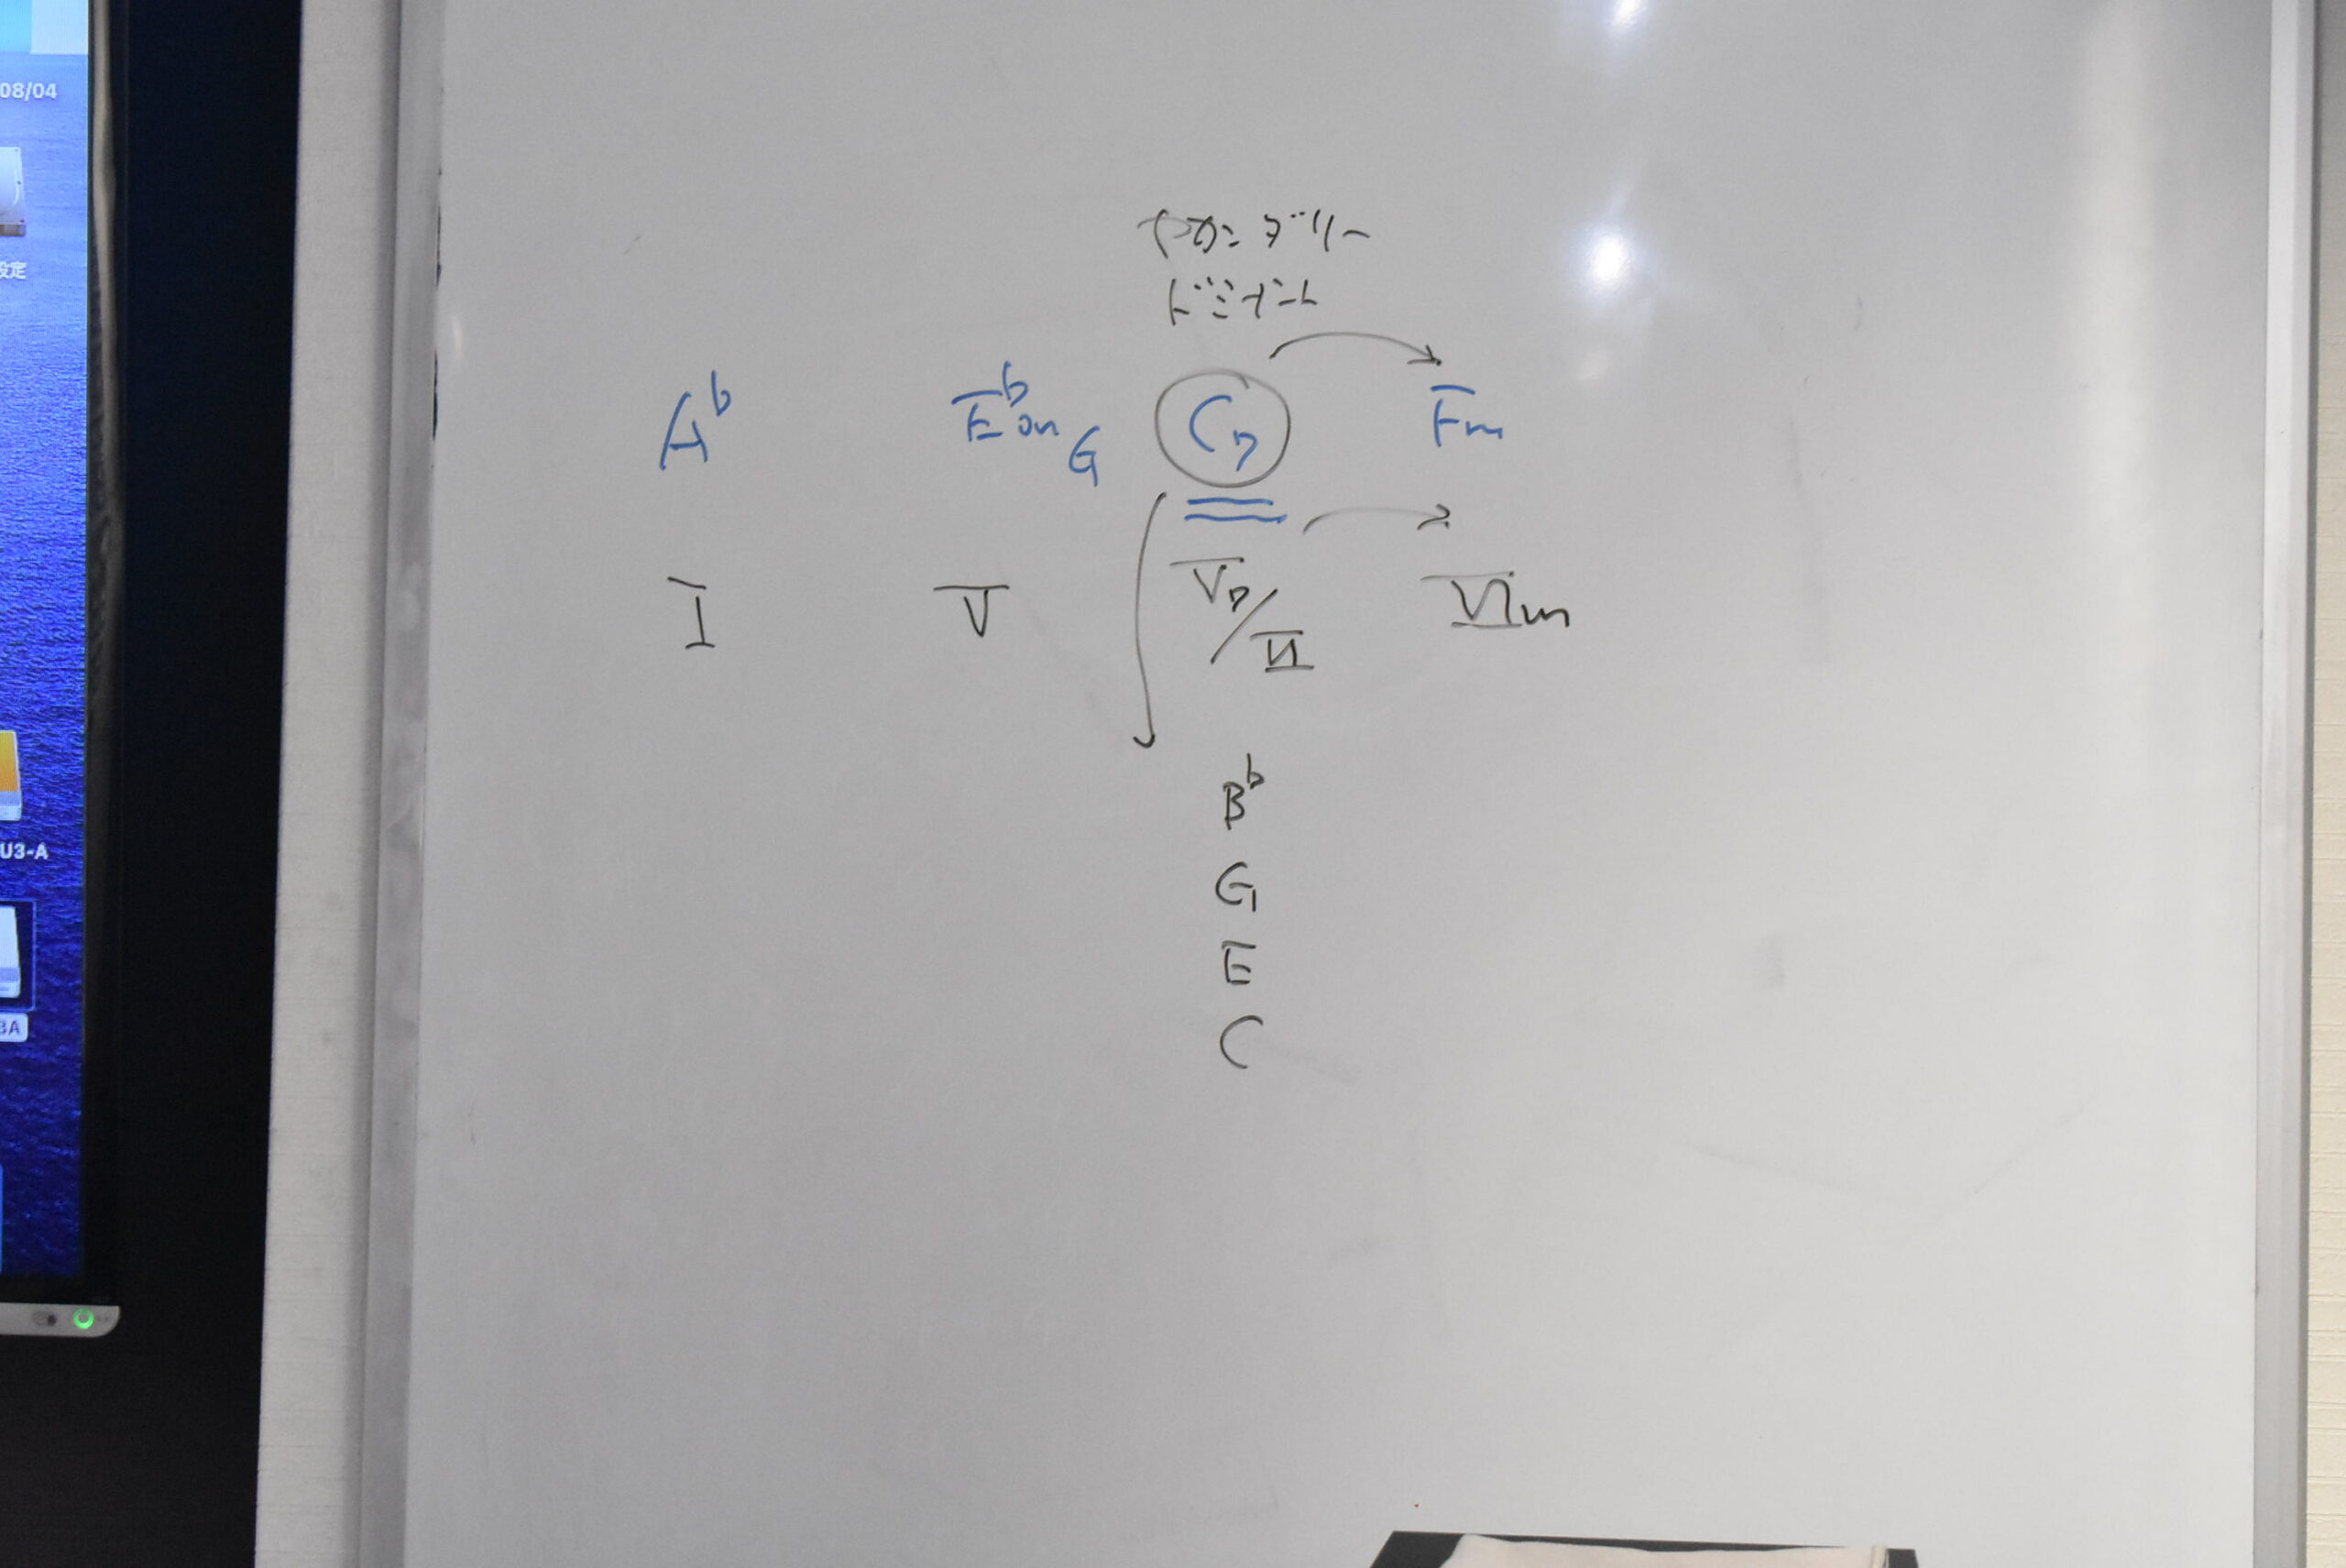 08/04
設定
U3-A
3A
セカンダリー
ドミナント
A♭ E♭on G C7 Fm
I V V7/VI VIm
B♭
G
E
C